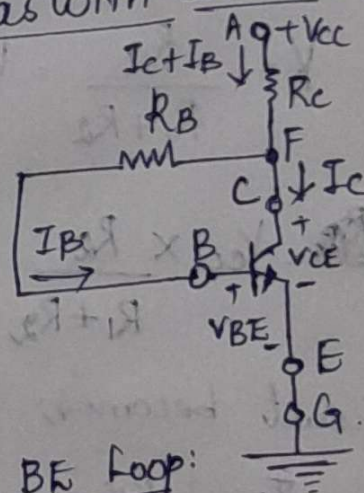 as with
A +Vcc
Ic+IB
Rc
RB
F
C
Ic
+
IB
B
VCE
+
-
VBE
-
E
G
BE Loop: